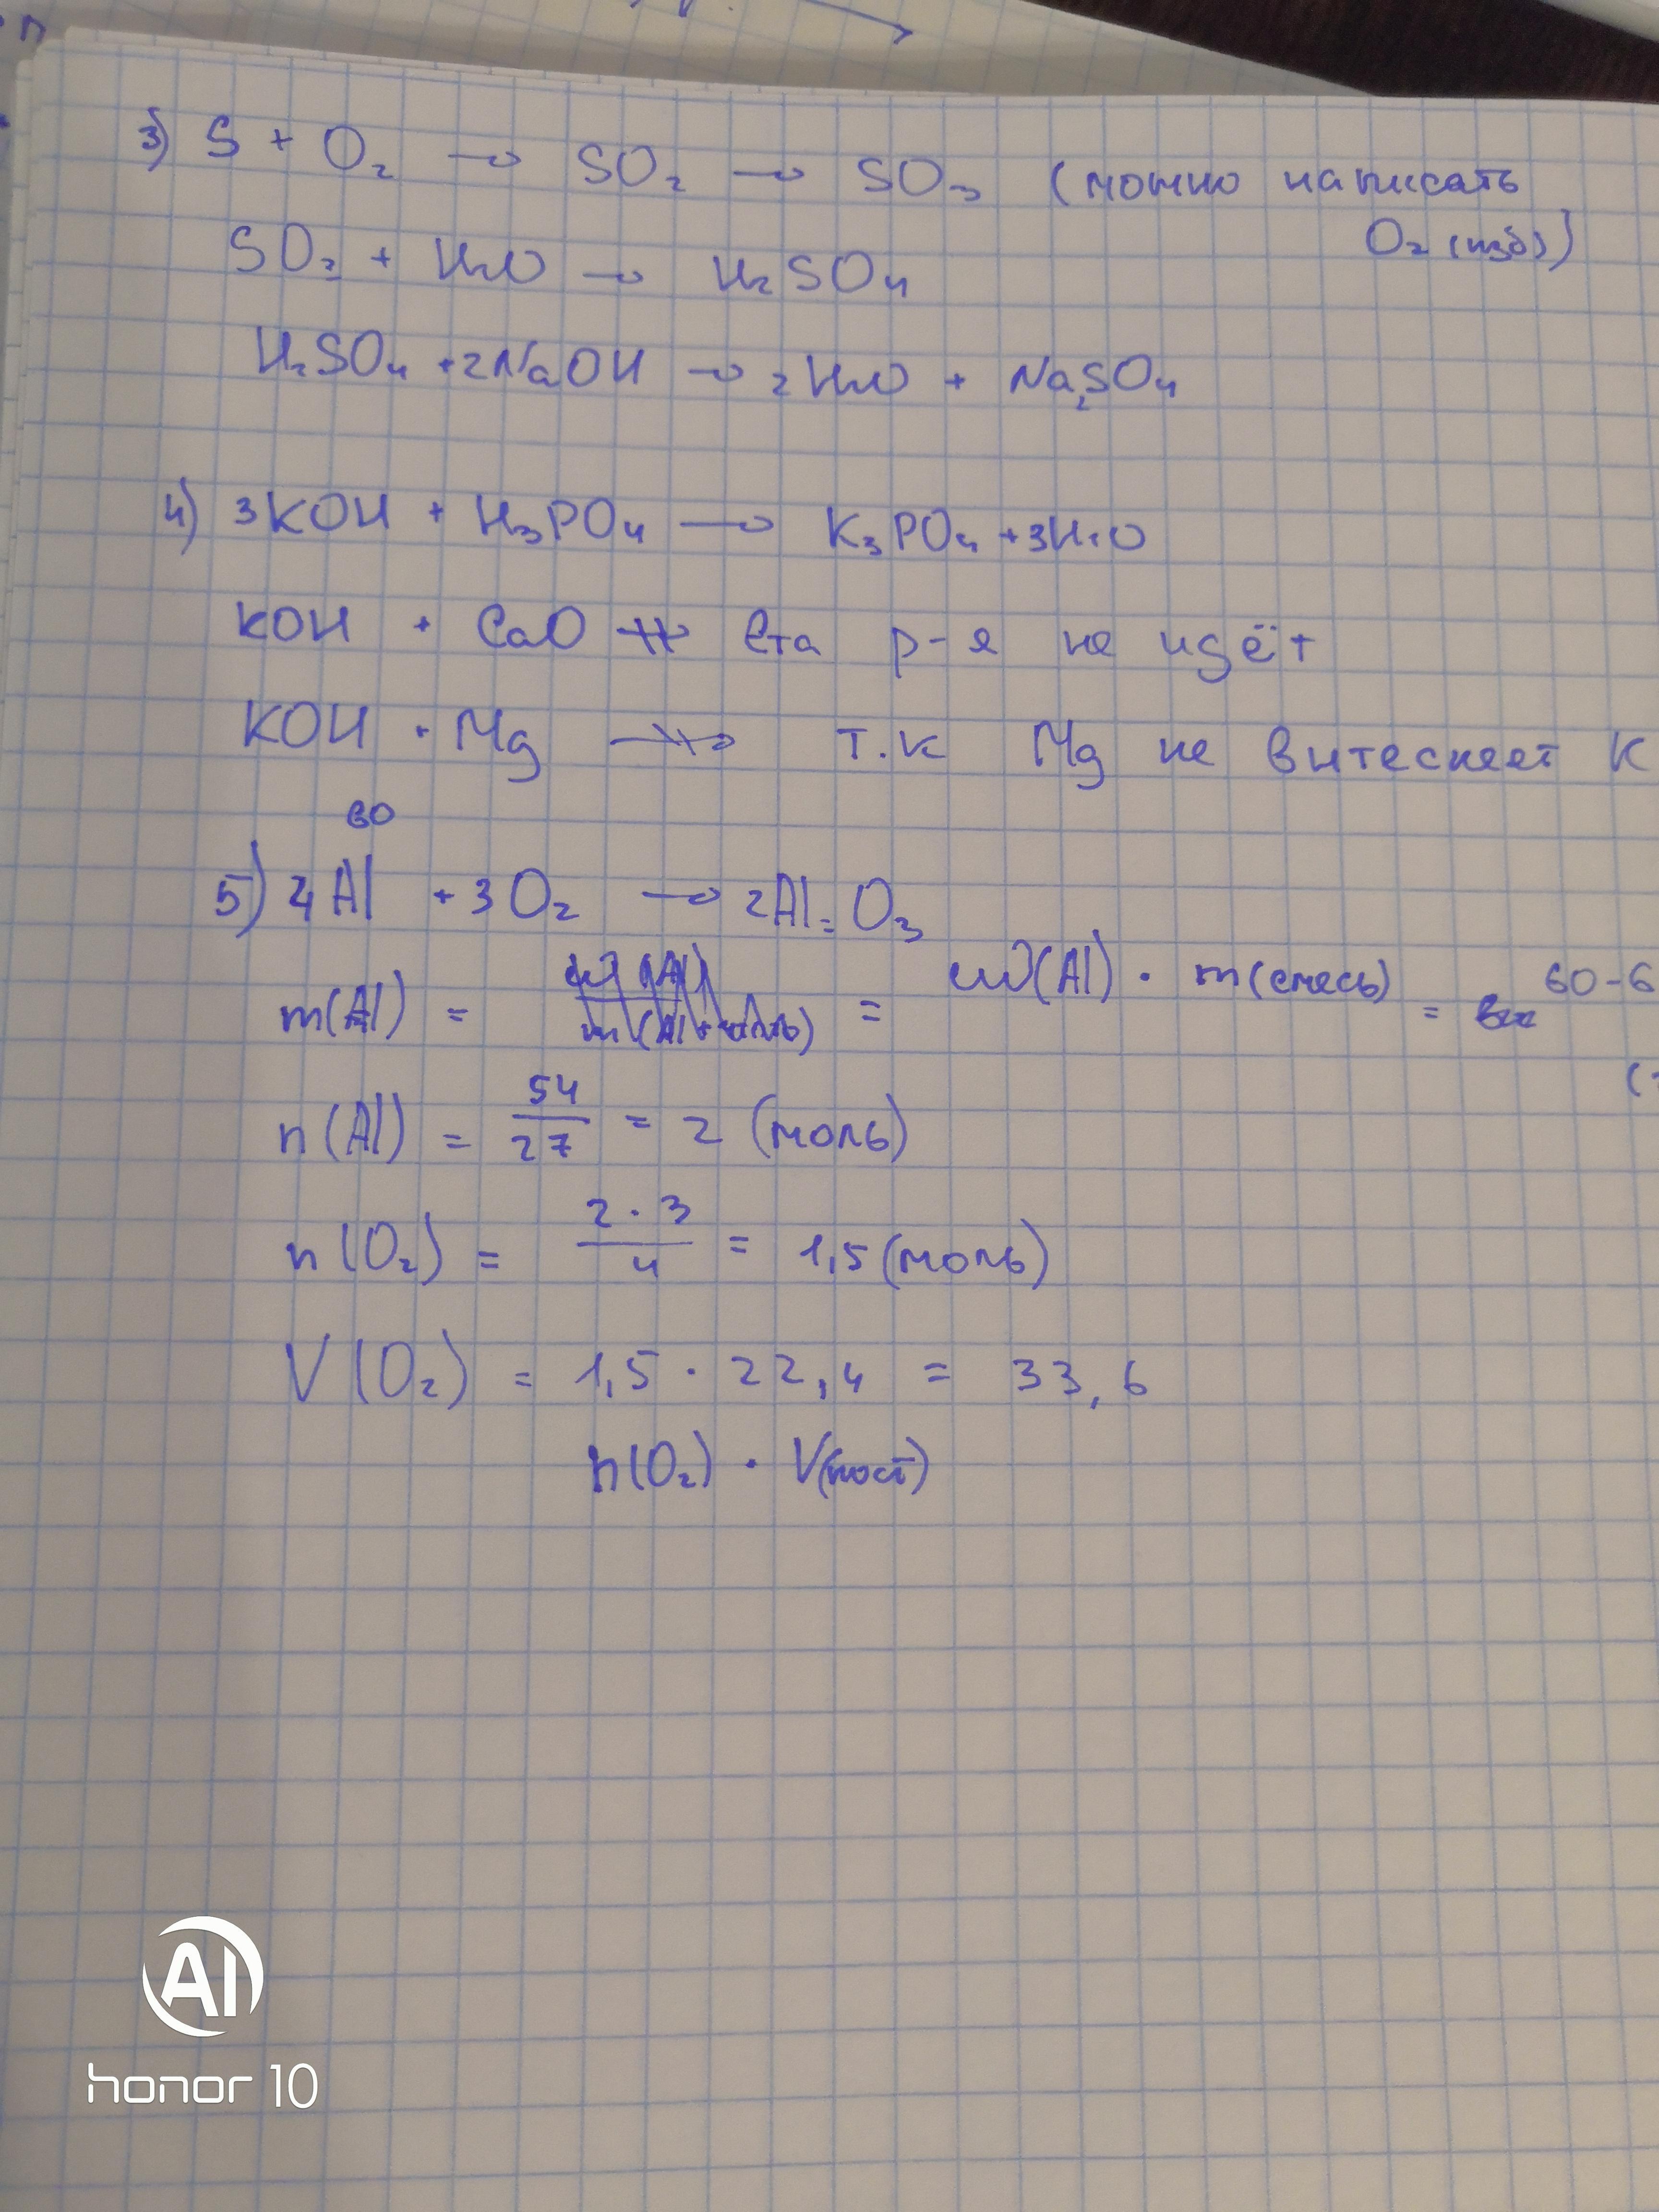 3) S + O₂ → SO₂ → SO₃ (можно написать
O₂ (изб))
SO₃ + H₂O → H₂SO₄
H₂SO₄ + 2NaOH → 2H₂O + Na₂SO₄
4) 3KOH + H₃PO₄ → K₃PO₄ + 3H₂O
KOH + CaO ↛ Ета р-я не идёт
KOH + Mg ↛ т.к Mg не витесняет K
60
5) 4Al + 3O₂ → 2Al₂O₃
m(Al) = = ω(Al) · m(смесь) = 60-6
n(Al) = 54/27 = 2 (моль)
n(O₂) = 2·3/4 = 1,5 (моль)
V(O₂) = 1,5 · 22,4 = 33,6
n(O₂) · V(пост)
AI
honor 10